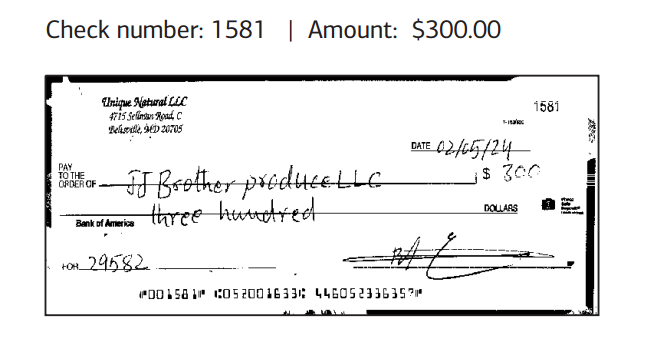 Check number: 1581 | Amount: $300.00
Unique Natural LLC
1581
4715 Sellman Road, C
Beltsville, MD 20705
DATE 02/05/24
PAY
TO THE
ORDER OF JJ Brother produce LLC $ 300
three hundred DOLLARS
Bank of America
FOR 29582
⑈001581⑈ ⑆052001633⑆ 446052336357⑈